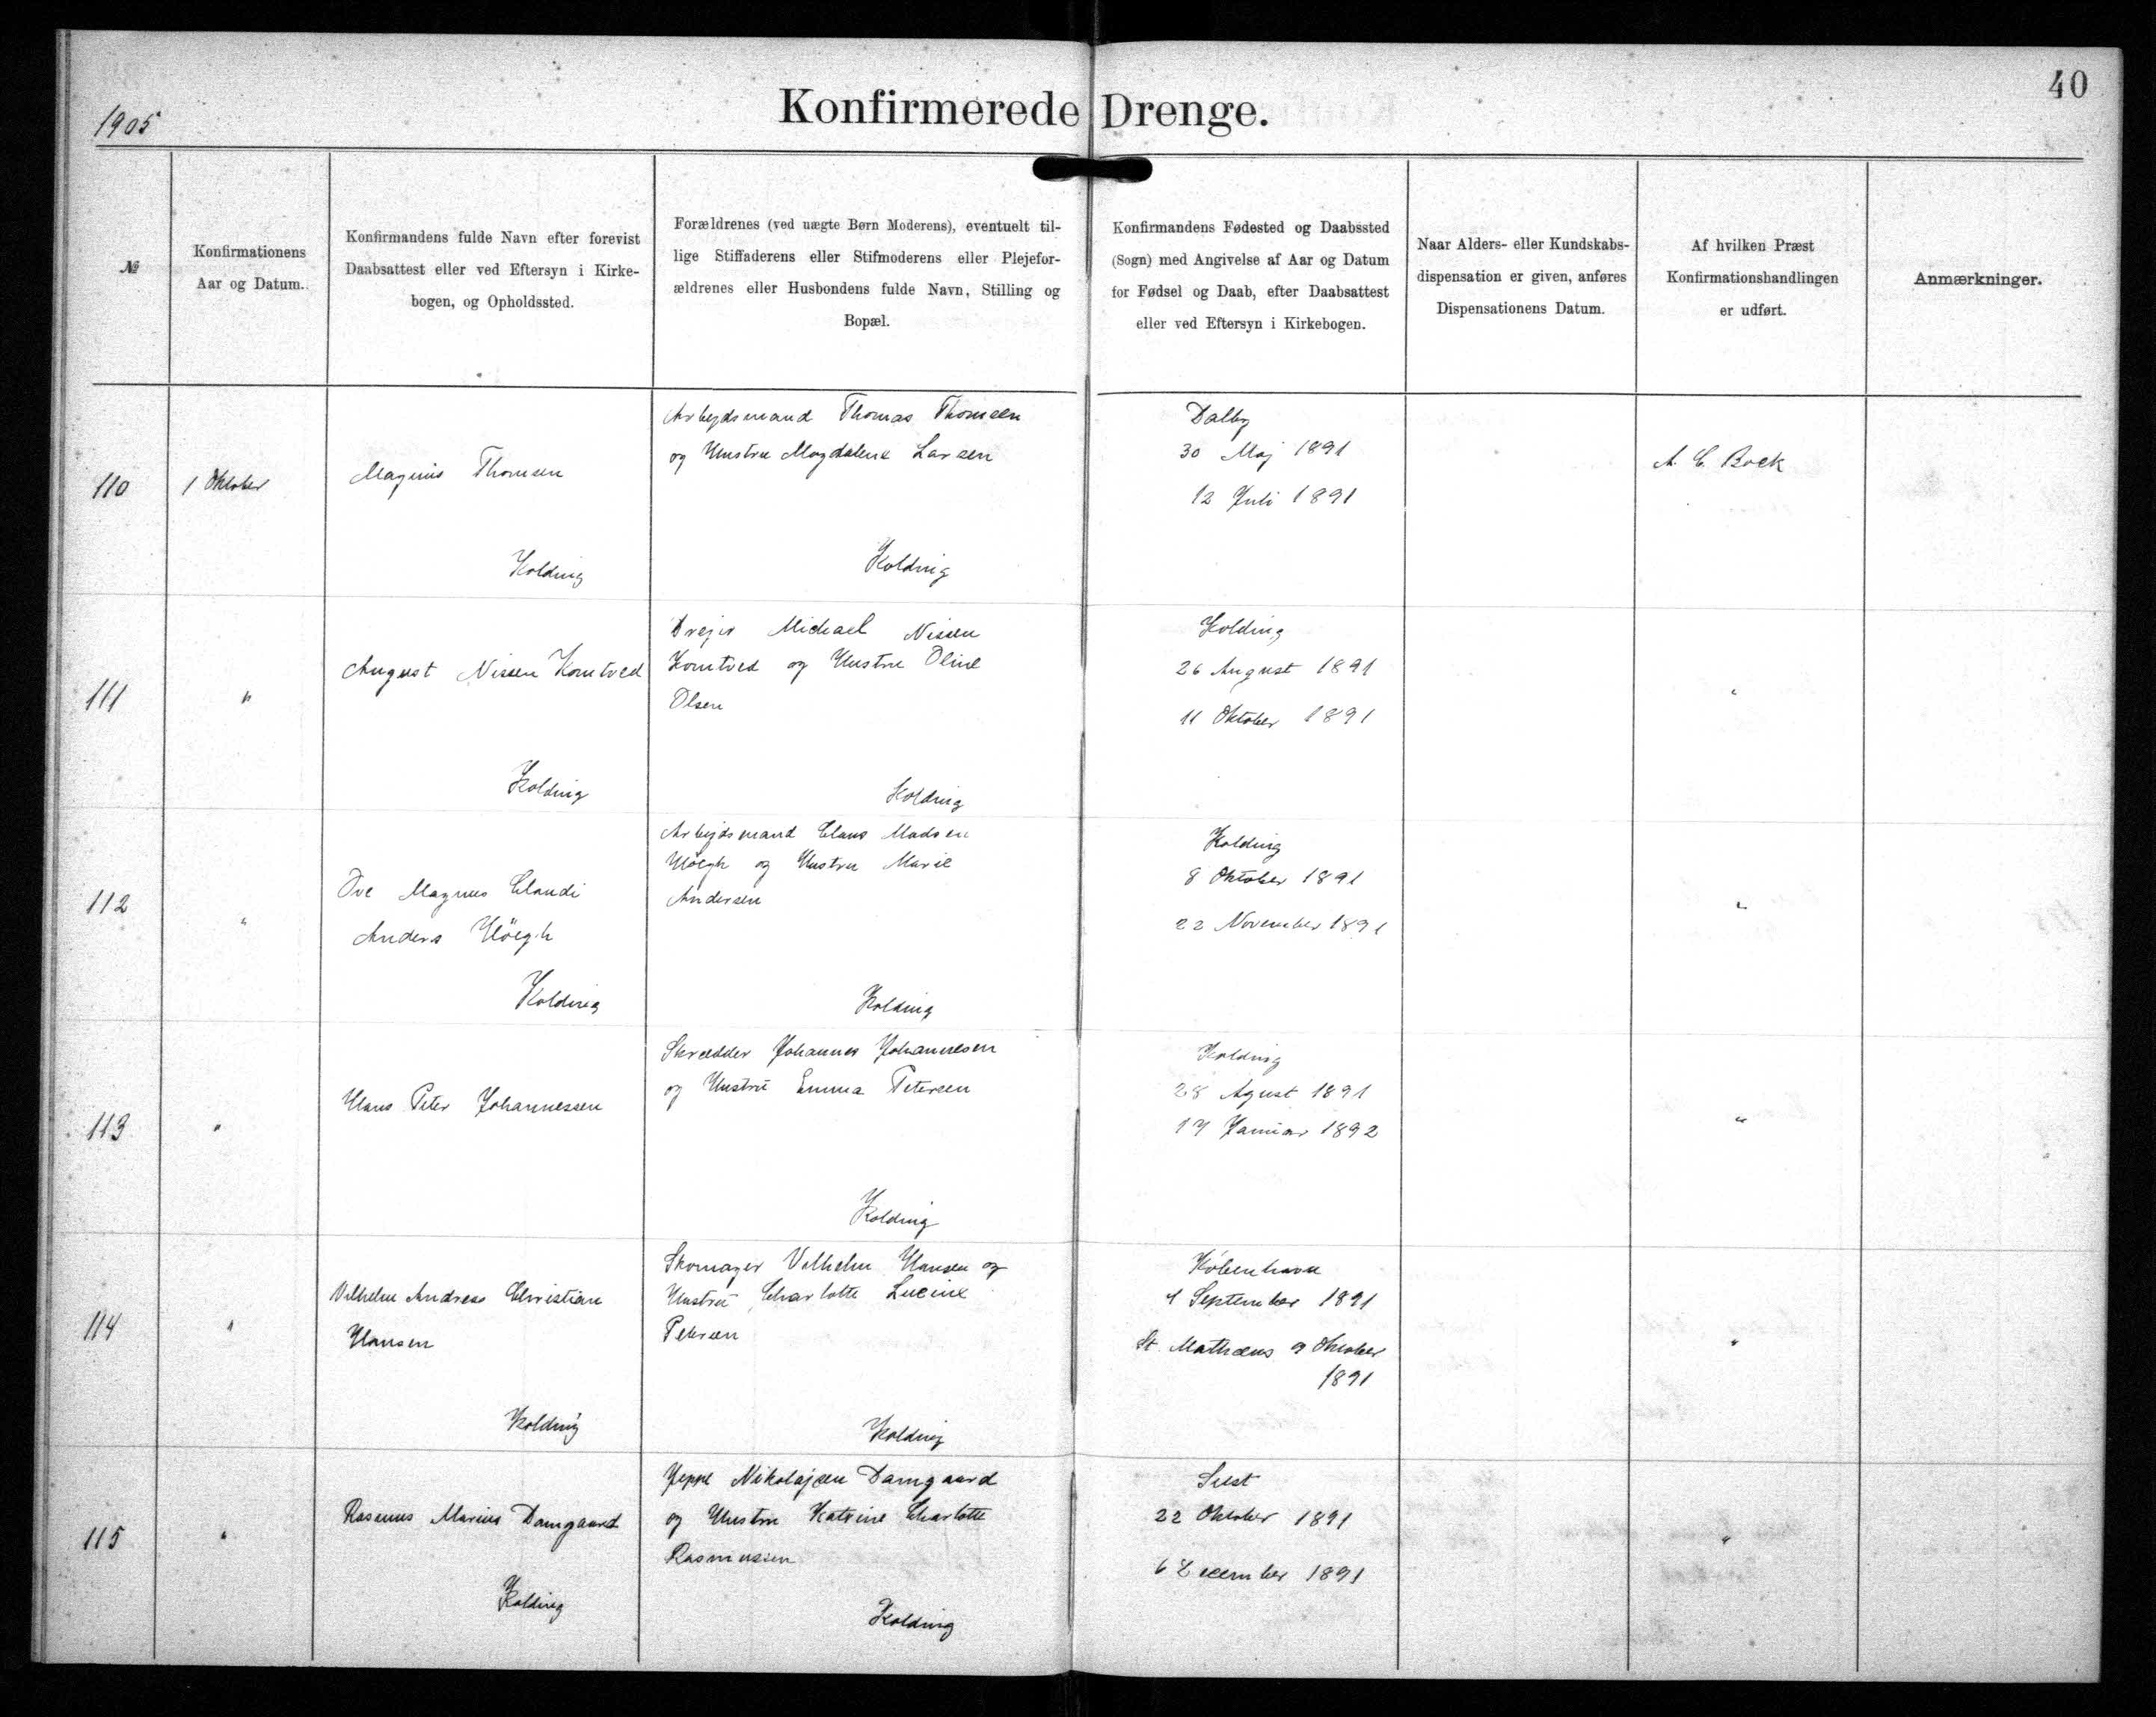 1905
Konfirmerede Drenge.
40
№
Konfirmationens
Aar og Datum.
Konfirmandens fulde Navn efter forevist
Daabsattest eller ved Eftersyn i Kirke-
bogen, og Opholdssted.
Forældrenes (ved uægte Børn Moderens), eventuelt til-
lige Stiffaderens eller Stifmoderens eller Plejefor-
ældrenes eller Husbondens fulde Navn, Stilling og
Bopæl.
Konfirmandens Fødested og Daabssted
(Sogn) med Angivelse af Aar og Datum
for Fødsel og Daab, efter Daabsattest
eller ved Eftersyn i Kirkebogen.
Naar Alders- eller Kundskabs-
dispensation er given, anføres
Dispensationens Datum.
Af hvilken Præst
Konfirmationshandlingen
er udført.
Anmærkninger.
110
1 Oktober
Magnus Thomsen
Kolding
Arbejdsmand Thomas Thomsen
og Hustru Magdalene Larsen
Kolding
Dalby
30 Maj 1891
12 Juli 1891
A. C. Bock
111
"
August Nissen Komtved
Kolding
Drejer Michael Nissen
Komtved og Hustru Oline
Olsen
Kolding
Kolding
26 August 1891
11 Oktober 1891
"
112
"
Ove Magnus Claudi
Anders Höegh
Kolding
Arbejdsmand Claus Madsen
Höegh og Hustru Marie
Andersen
Kolding
Kolding
8 Oktober 1891
22 November 1891
"
113
"
Hans Peter Johannessen
Skrædder Johannes Johannesen
og Hustru Emma Petersen
Kolding
Kolding
28 Agust 1891
17 Januar 1892
"
114
"
Vilhelm Andreas Christian
Hansen
Kolding
Skomager Vilhelm Hansen og
Hustru Charlotte Lucine
Petersen
Kolding
København
4 September 1891
St. Mathæus 9 Oktober
1891
"
115
"
Rasmus Marius Damgaard
Kolding
Jeppe Nikolajsen Damgaard
og Hustru Katrine Charlotte
Rasmussen
Kolding
Seest
22 Oktober 1891
6 December 1891
"